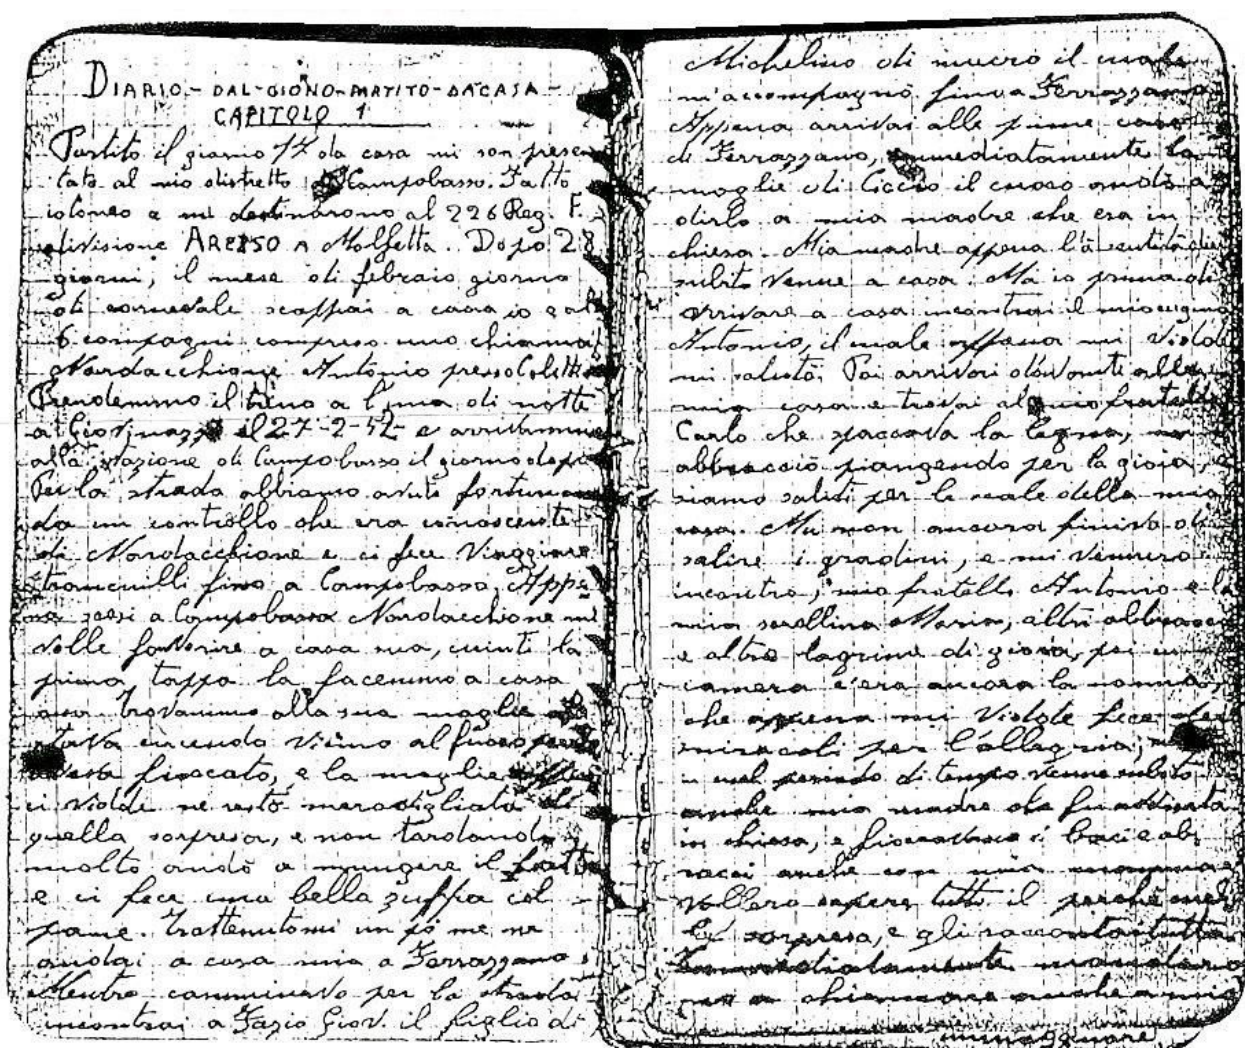 DIARIO - DAL - GIONO - PARTITO - DA CASA -
CAPITOLO 1
Partito il giorno 17 da casa mi son presen
tato al mio distretto Campobasso. Fatto
idoneo a mi destinarono al 226 Reg. F.
divisione AREZSO A Molfetta. Dopo 28
giorni, il mese di febraio giorno
di carnevale scappai a casa io e altri
6 compagni compreso uno chiama
Nardacchione Antonio presso Coletto
Prendemmo il treno a l'una di notte
a Giovinazzo il 27-2-42 e arrivammo
alla stazione di Campobasso il giorno dopo
Per la strada abbiamo avuto fortuna
da un controllo che era conoscente
di Nardacchione e ci fece viaggiare
trancuilli fino a Campobasso. Appe
na scesi a Campobasso Nardacchione mi
volle favorire a casa sua, cuinti la
prima tappa la facemmo a casa
sua. Trovammo alla sua moglie
stava cucendo vicino al fuoco
aveva fioccato, e la moglie
ci vidde ne restò meravigliata di
quella sorpresa, e non tardando
molto andò a mungere il latte
e ci fece una bella zuppa col
pane. Trattenutomi un pò me ne
andai a casa mia a Ferrazzano.
Mentre camminavo per la strada
incontrai a Fazio Giov. il figlio di
Michelino di mucro il cuale
m'accompagnò fino a Ferrazzano
Appena arrivai alle prime case
di Ferrazzano, immediatamente la
moglie di Ciccio il cuoco andò a
dirlo a mia madre che era in
chiesa. Mia madre appena l'à sentita
subito venne a casa. Ma io prima di
arrivare a casa incontrai il mio cugino
Antonio, il cuale appena mi vidde
mi salutò. Poi arrivai davante alla
mia casa e trovai al mio fratello
Carlo che spaccava la legna,
abbracciò piangendo per la gioia, e
siamo saliti per le scale della mia
casa. Ma non ancora finivo di
salire i gradini, e mi vennero
incontro, mio fratello Antonio e la
mia sorellina Maria, altri abbracci
e altre lagrime di gioia, poi in
camera c'era ancora la nonna,
che appena mi vidde fece dei
miracoli per l'allegria,
cuel periodo di tempo venne subito
anche mia madre che fu
in chiesa, e fioccavano i baci e ab
racci anche con mia mamma
vollero sapere tutto il perchè
sorpresa, e gli raccontai tutto.
Immediatamente mandarono
a chiamare anche a mio
immagginare